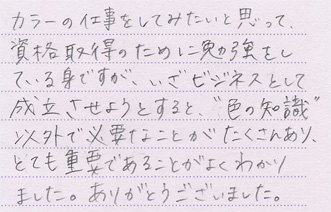 カラーの仕事をしてみたいと思って、
資格取得のために勉強をし
ている身ですが、いざビジネスとして
成立させようとすると、"色の知識"
以外で必要なことがたくさんあり、
とても重要であることがよくわかり
ました。ありがとうございました。